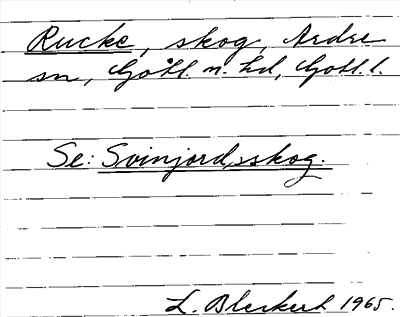 Rucke, skog, Ardre
sn, Gotl. n. hd, Gotl. l.
Se: Svinjordsskog.
L. Bleckert 1965.